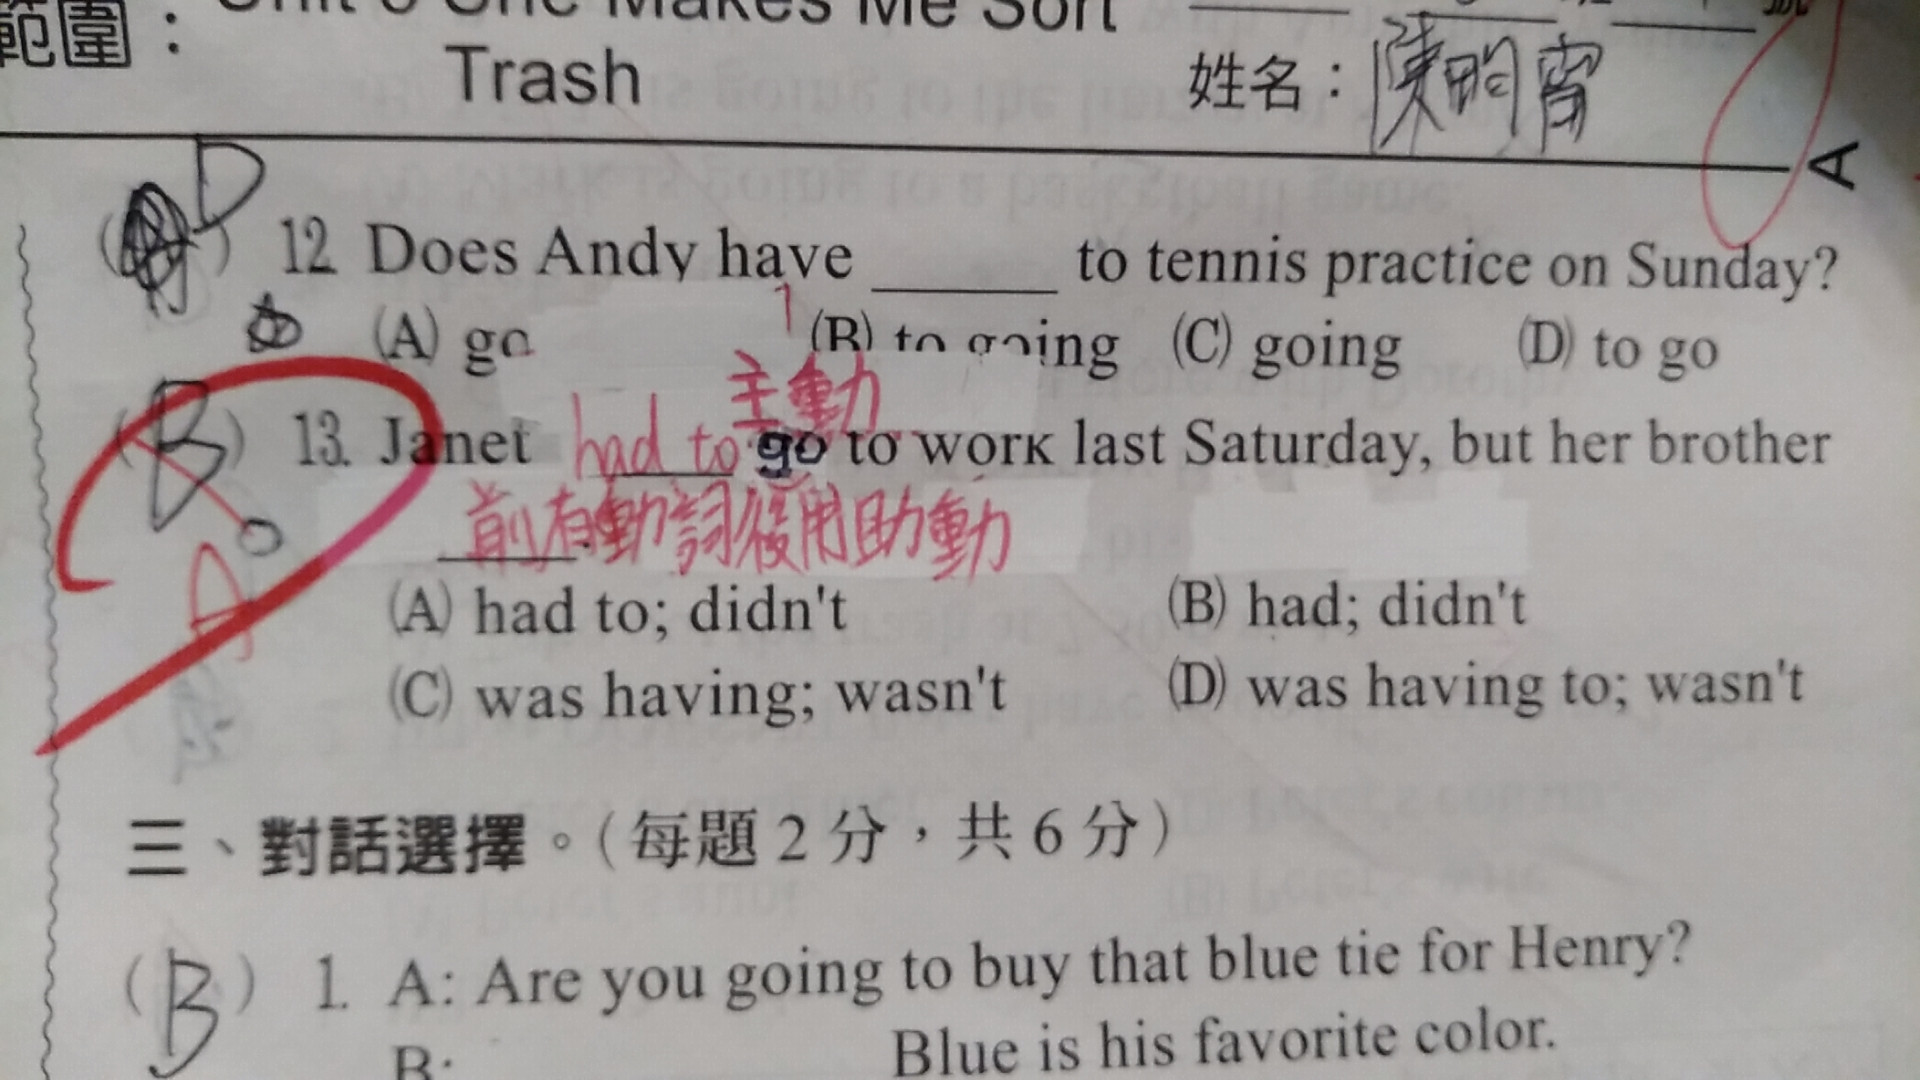 範圍：
Trash
姓名：陳
A
D
12. Does Andy have ______ to tennis practice on Sunday?
(A) go (B) to going (C) going (D) to go
主動
(B) 13. Janet had to go to work last Saturday, but her brother
前有動詞後用助動
A
(A) had to; didn't (B) had; didn't
(C) was having; wasn't (D) was having to; wasn't
三、對話選擇。(每題2分，共6分)
(B) 1. A: Are you going to buy that blue tie for Henry?
B: ______ Blue is his favorite color.